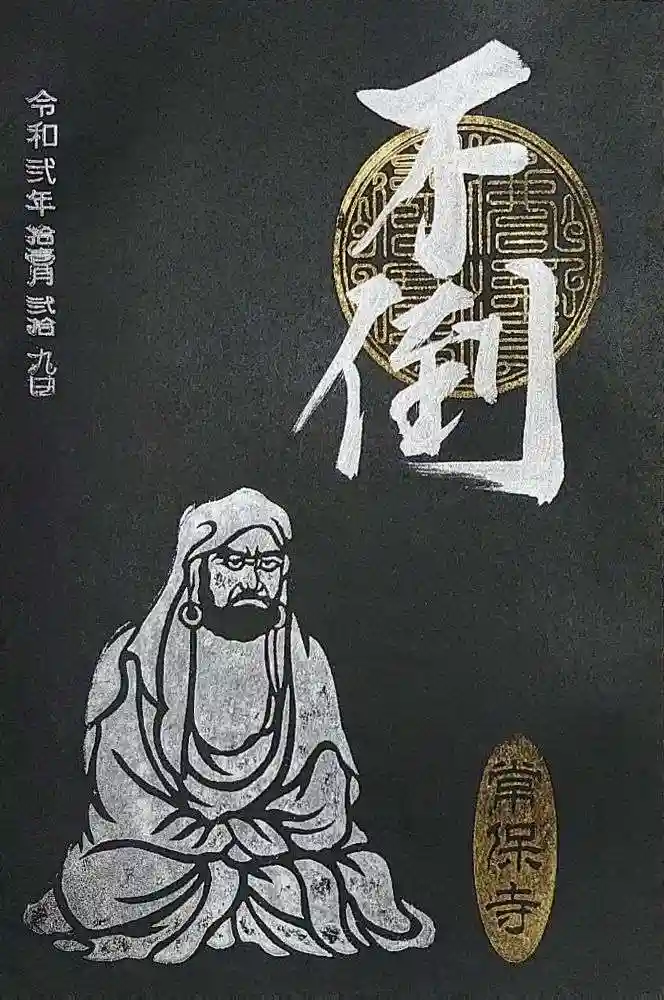 不倒
令和弐年拾壹月弐拾九日
常保寺